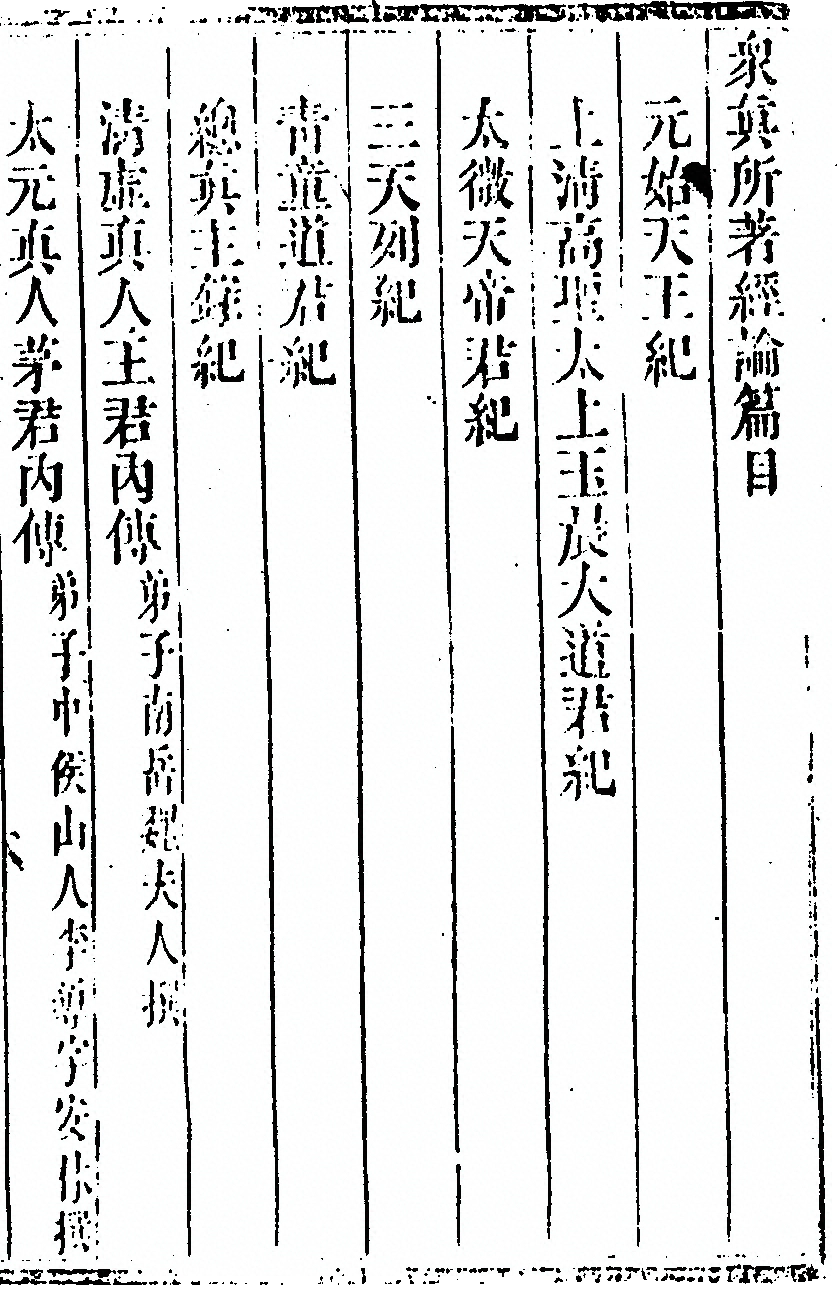 衆真所著經論篇目
元始天王紀
上清高聖太上玉晨大道君紀
太微天帝君紀
三天列紀
青童道君紀
總真主錄紀
清虛真人王君內傳 弟子南岳魏夫人撰
太元真人茅君內傳 弟子中侯山人李尊字安林撰